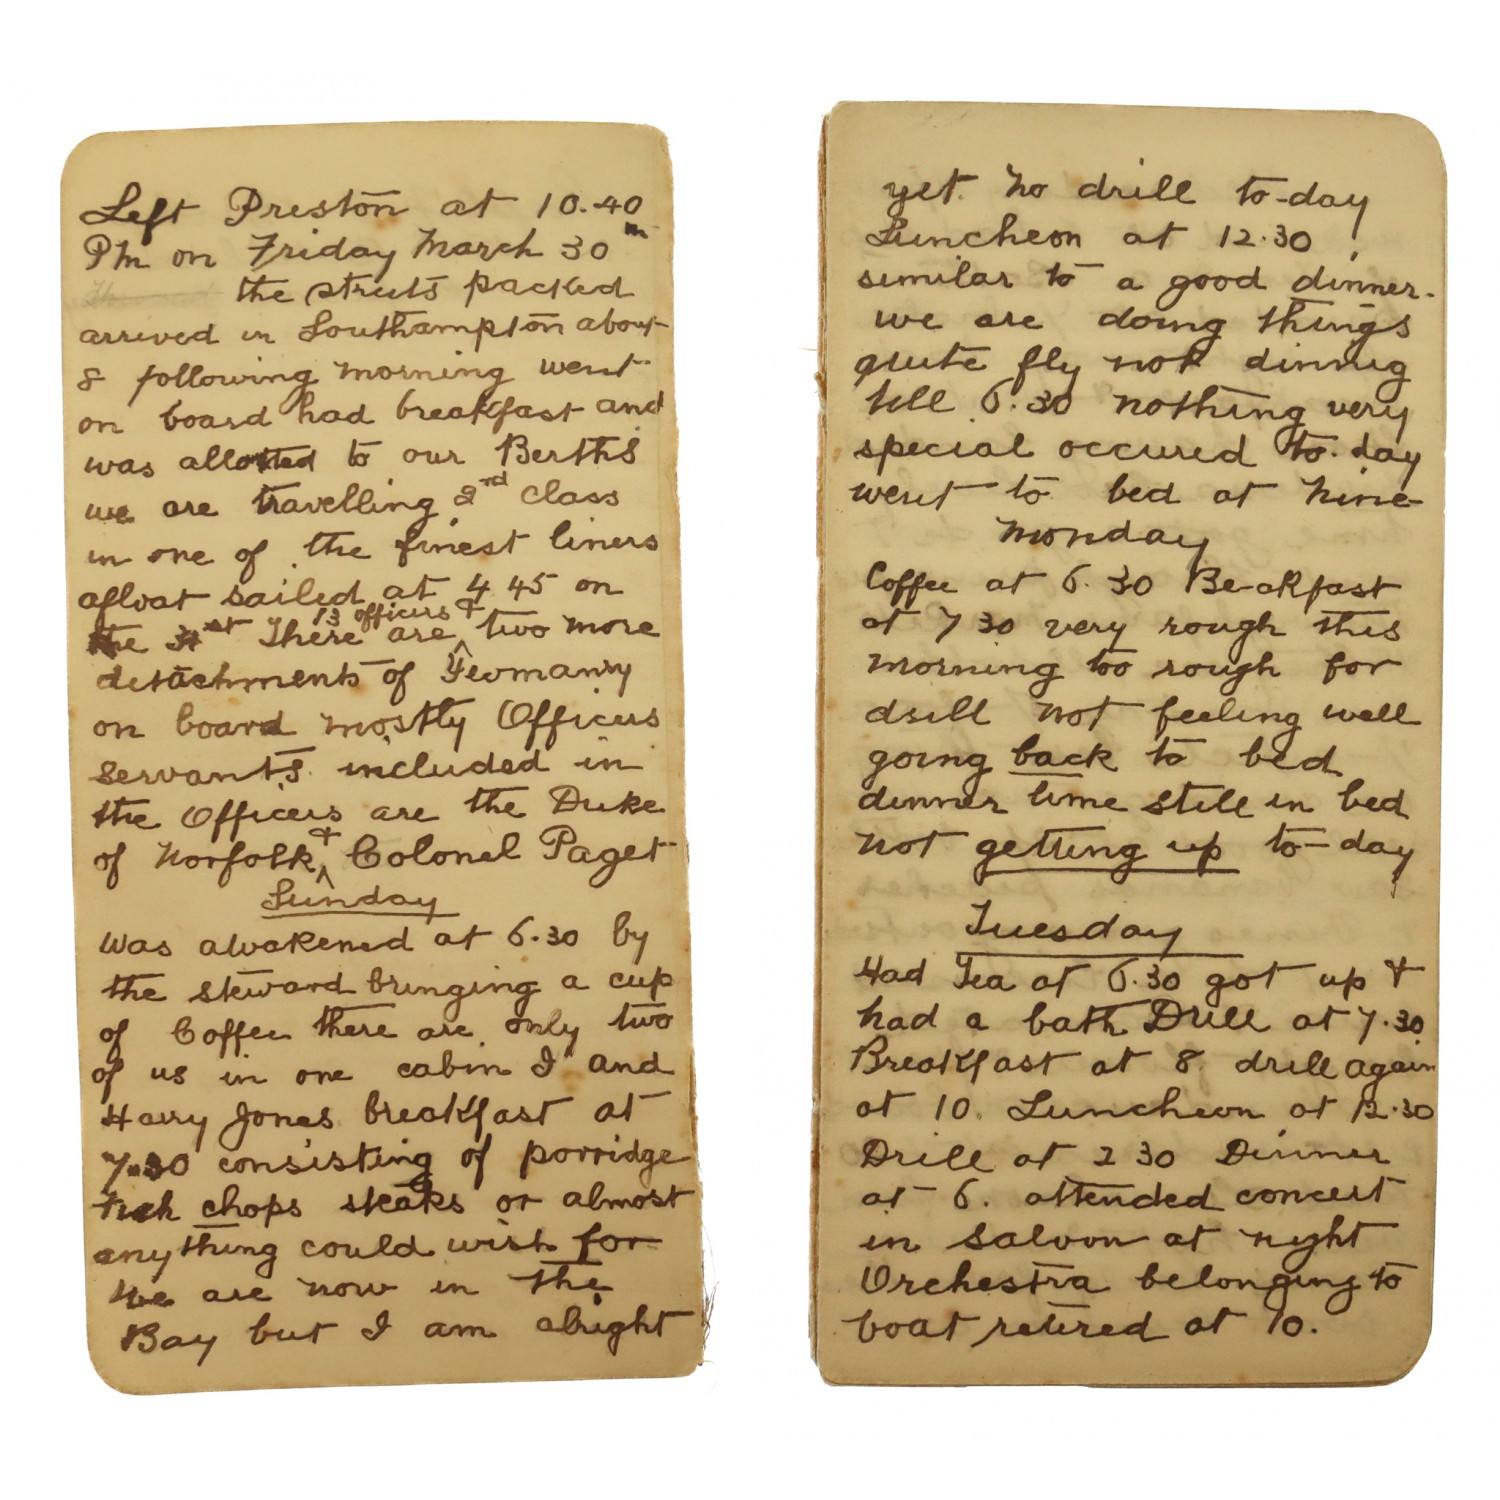 Left Preston at 10.40
Pm on Friday March 30 m
the streets packed
arrived in Southampton about
8 following morning went
on board had breakfast and
was allotted to our Berths
we are travelling 2rd class
in one of the finest liners
afloat sailed at 4 45 on
the 31st There are 13 officers & two more
detachments of Yeomanry
on board mostly Officers
servants included in
the Officers are the Duke
of Norfolk & Colonel Paget
Sunday
was awakened at 6.30 by
the steward bringing a cup
of Coffee there are only two
of us in one cabin I and
Harry Jones breakfast at
7.30 consisting of porridge
chops steaks or almost
anything could wish for
We are now in the
Bay but I am alright
yet. No drill to-day
Luncheon at 12.30,
similar to a good dinner.
we are doing things
quite fly not dinnig
till 6.30 nothing very
special occured to-day
went to bed at Nine
Monday
Coffee at 6.30 Breakfast
at 7 30 very rough this
morning too rough for
drill not feeling well
going back to bed
dinner time still in bed
not getting up to-day
Tuesday
Had Tea at 6.30 got up &
had a bath Drill at 7.30
Breakfast at 8 drill again
at 10. Luncheon at 12.30
Drill at 2 30 Dinner
at 6. attended concert
in saloon at night
Orchestra belonging to
boat retired at 10.